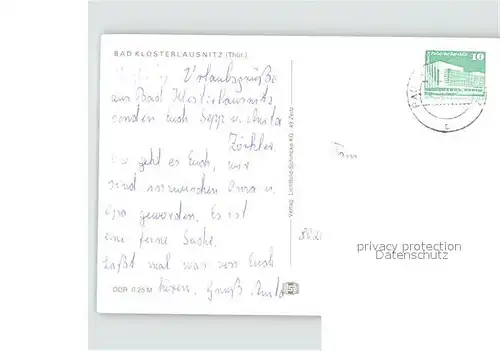 BAD KLOSTERLAUSNITZ (Thür.)
Urlaubsgrüße
aus Bad Klosterlausnitz
senden Euch Sepp u. Anita
Wie geht es Euch, wir
sind inzwischen Oma u.
Opa geworden. Es ist
eine feine Sache.
Laßt mal was von Euch
hören. Gruß Anita
DDR 0,25 M
Verlag Lichtbild-Schincke KG · 49 Zeitz
10
Fam
privacy protection
Datenschutz